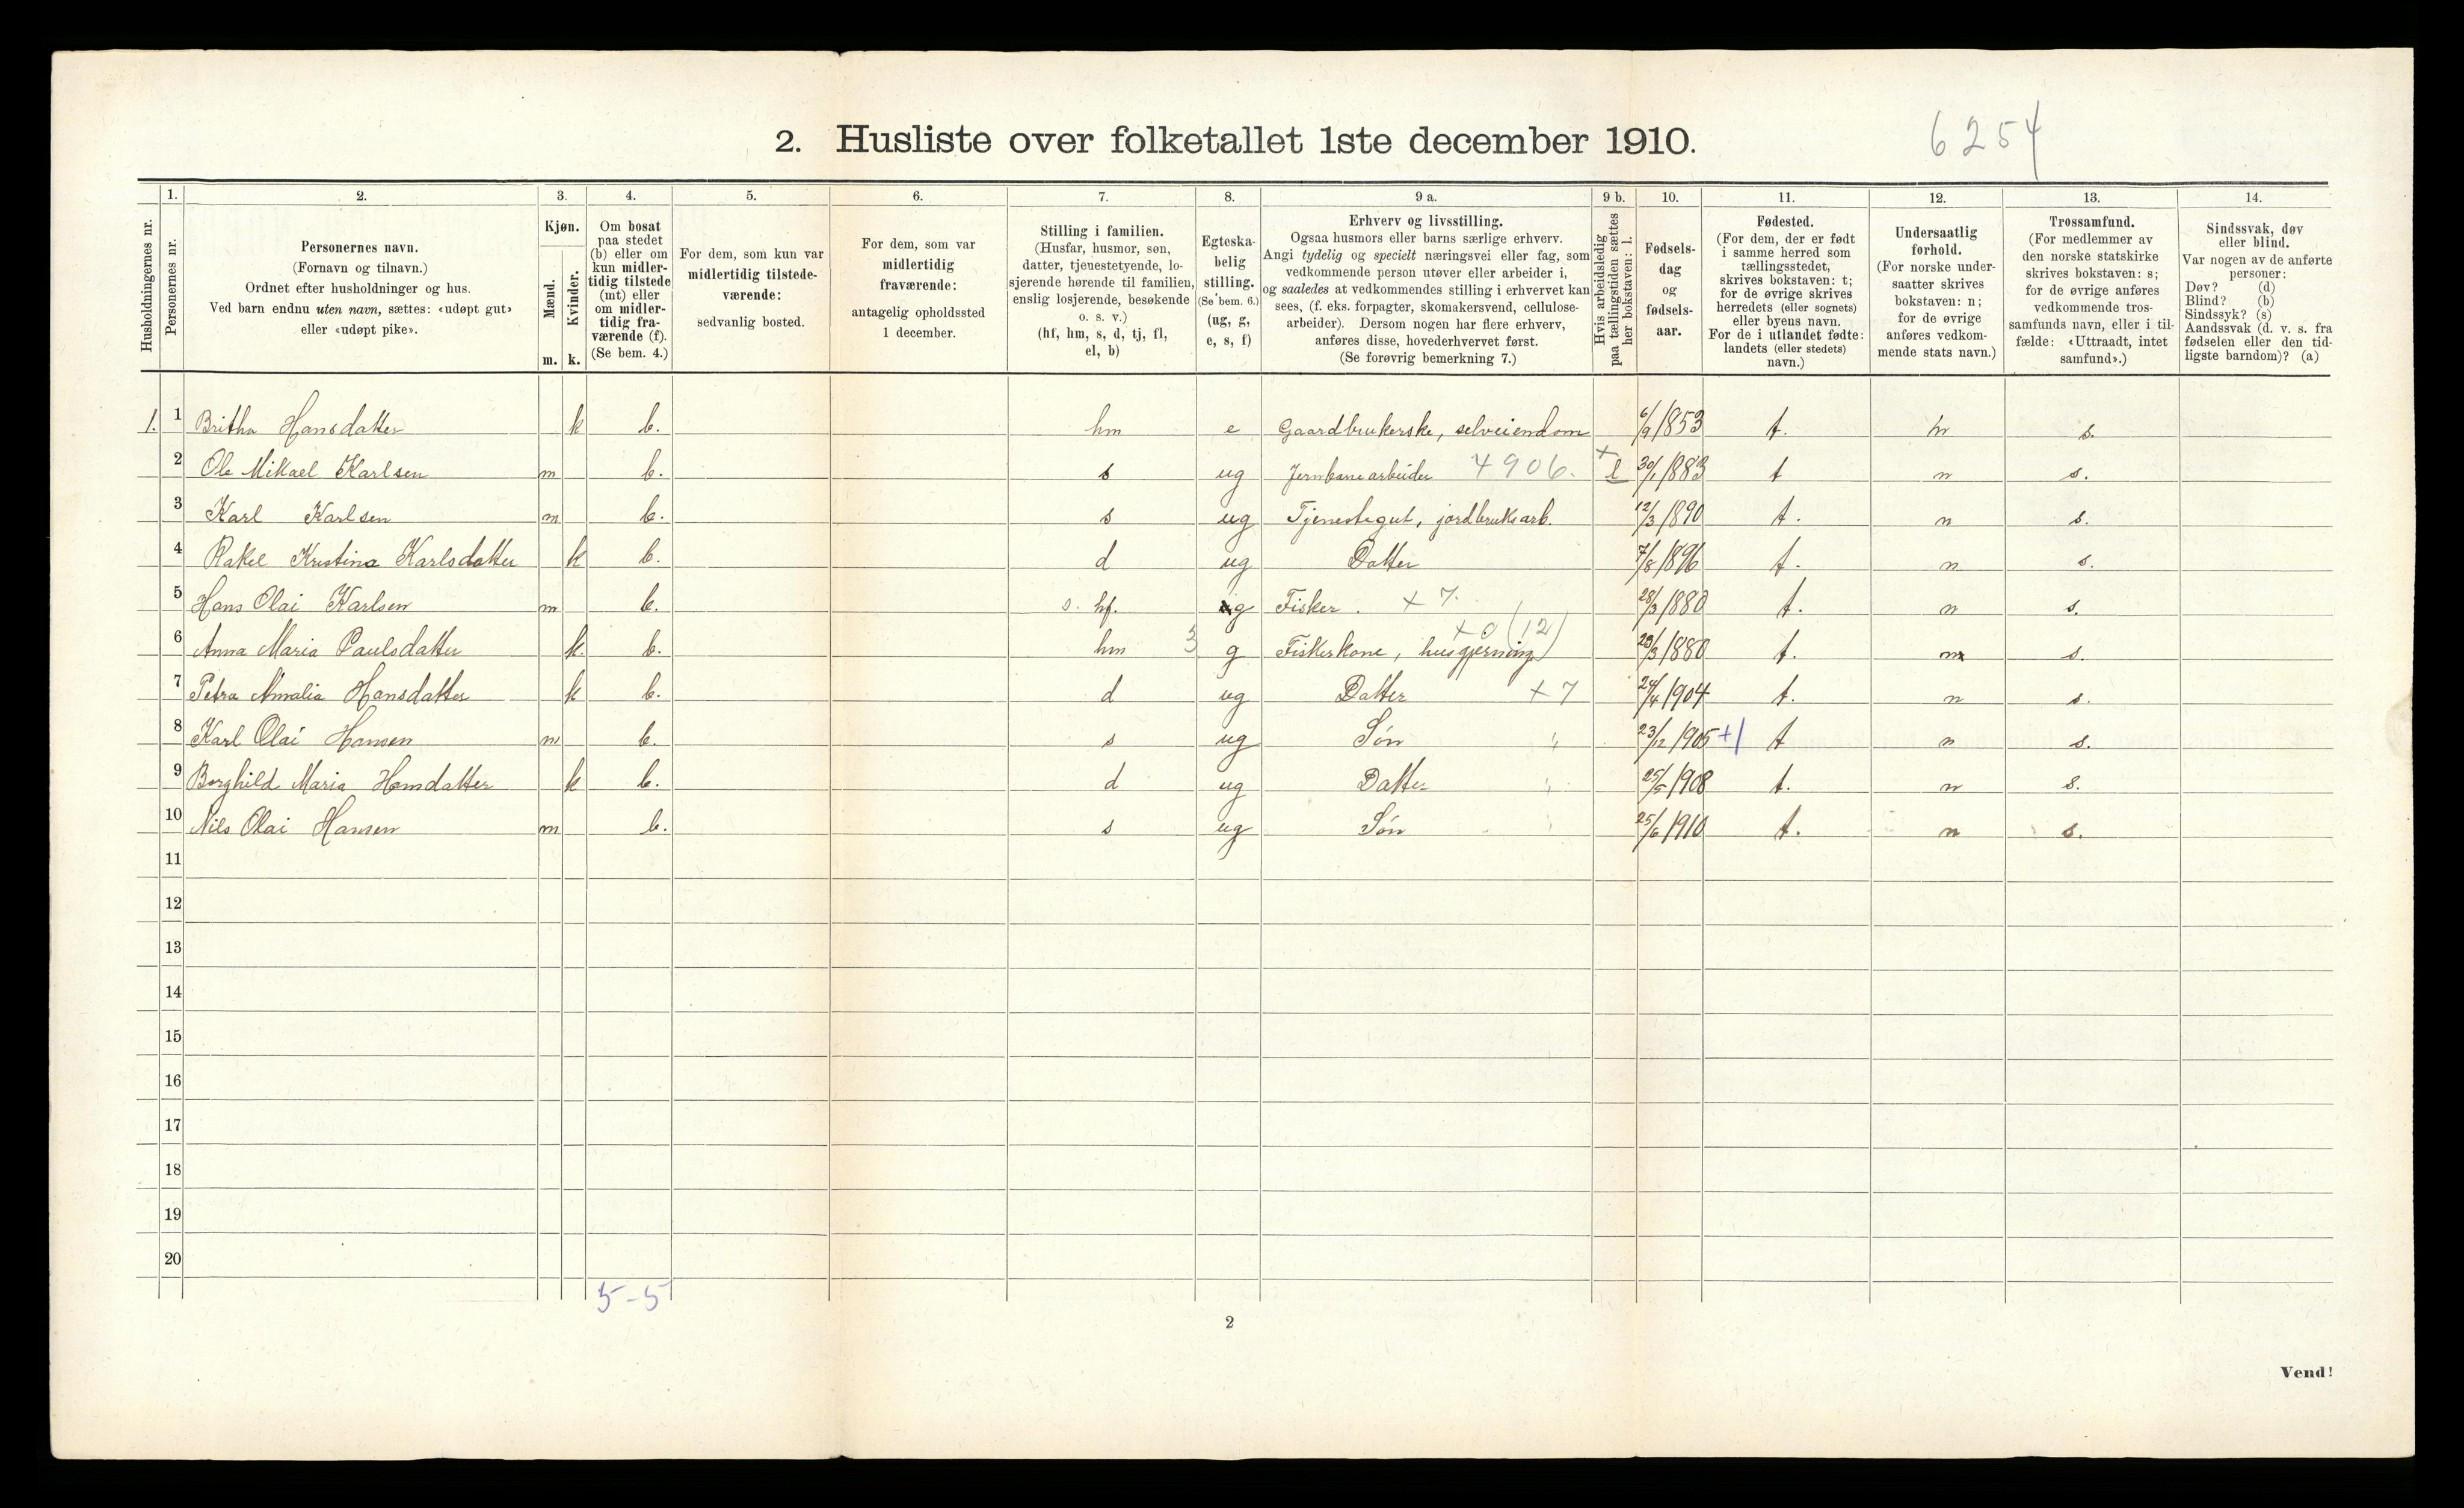 2. Husliste over folketallet 1ste december 1910.
6254
Husholdningernes nr.
1.
Personernes nr.
2.
Personernes navn.
(Fornavn og tilnavn.)
Ordnet efter husholdninger og hus.
Ved barn endnu uten navn, sættes: «udøpt gut»
eller «udøpt pike».
3.
Kjøn.
Mænd.
m.
Kvinder.
k.
4.
Om bosat
paa stedet
(b) eller om
kun midler-
tidig tilstede
(mt) eller
om midler-
tidig fra-
værende (f).
(Se bem. 4.)
5.
For dem, som kun var
midlertidig tilstede-
værende:
sedvanlig bosted.
6.
For dem, som var
midlertidig
fraværende:
antagelig opholdssted
1 december.
7.
Stilling i familien.
(Husfar, husmor, søn,
datter, tjenestetyende, lo-
sjerende hørende til familien,
enslig losjerende, besøkende
o. s. v.)
(hf, hm, s, d, tj, fl,
el, b)
8.
Egteska-
belig
stilling.
(Se bem. 6.)
(ug, g,
e, s, f)
9 a.
Erhverv og livsstilling.
Ogsaa husmors eller barns særlige erhverv.
Angi tydelig og specielt næringsvei eller fag, som
vedkommende person utøver eller arbeider i,
og saaledes at vedkommendes stilling i erhvervet kan
sees, (f. eks. forpagter, skomakersvend, cellulose-
arbeider). Dersom nogen har flere erhverv,
anføres disse, hovederhvervet først.
(Se forøvrig bemerkning 7.)
9 b.
Hvis arbeidsledig
paa tællingstiden sættes
her bokstaven: l.
10.
Fødsels-
dag
og
fødsels-
aar.
11.
Fødested.
(For dem, der er født
i samme herred som
tællingsstedet,
skrives bokstaven: t;
for de øvrige skrives
herredets (eller sognets)
eller byens navn.
For de i utlandet fødte:
landets (eller stedets)
navn.)
12.
Undersaatlig
forhold.
(For norske under-
saatter skrives
bokstaven: n;
for de øvrige
anføres vedkom-
mende stats navn.)
13.
Trossamfund.
(For medlemmer av
den norske statskirke
skrives bokstaven: s;
for de øvrige anføres
vedkommende tros-
samfunds navn, eller i til-
fælde: «Uttraadt, intet
samfund».)
14.
Sindssvak, døv
eller blind.
Var nogen av de anførte
personer:
Døv? (d)
Blind? (b)
Sindssyk? (s)
Aandssvak (d. v. s. fra
fødselen eller den tid-
ligste barndom)? (a)
1. 1 Britha Hansdatter k b. hm e Gaardbrukerske, selveiendom 6/9 1853 t. n s.
2 Ole Mikael Karlsen m b. s ug Jernbanearbeider 4906. + l 30/1 1883 t n s.
3 Karl Karlsen m b. s ug Tjenestegut, jordbruksarb. 12/3 1890 t. n s.
4 Rakel Kristina Karlsdatter k b. d ug Datter 7/8 1896 t. n s.
5 Hans Olai Karlsen m b. s. hf. g Fisker. + 7. 28/3 1880 t. n s.
6 Anna Maria Paulsdatter k b. hm 3 g Fiskerkone, husgjerning + 0 (12) 23/3 1880 t. n s.
7 Petra Amalia Hansdatter k b. d ug Datter + 7 24/4 1904 t. n s.
8 Karl Olai Hansen m b. s ug Søn " 23/12 1905 +1 t n s.
9 Borghild Maria Hansdatter k b. d ug Datter " 25/5 1908 t. n s.
10 Nils Olai Hansen m b. s ug Søn " 25/6 1910 t. n s.
11
12
13
14
15
16
17
18
19
20
5-5
2
Vend!